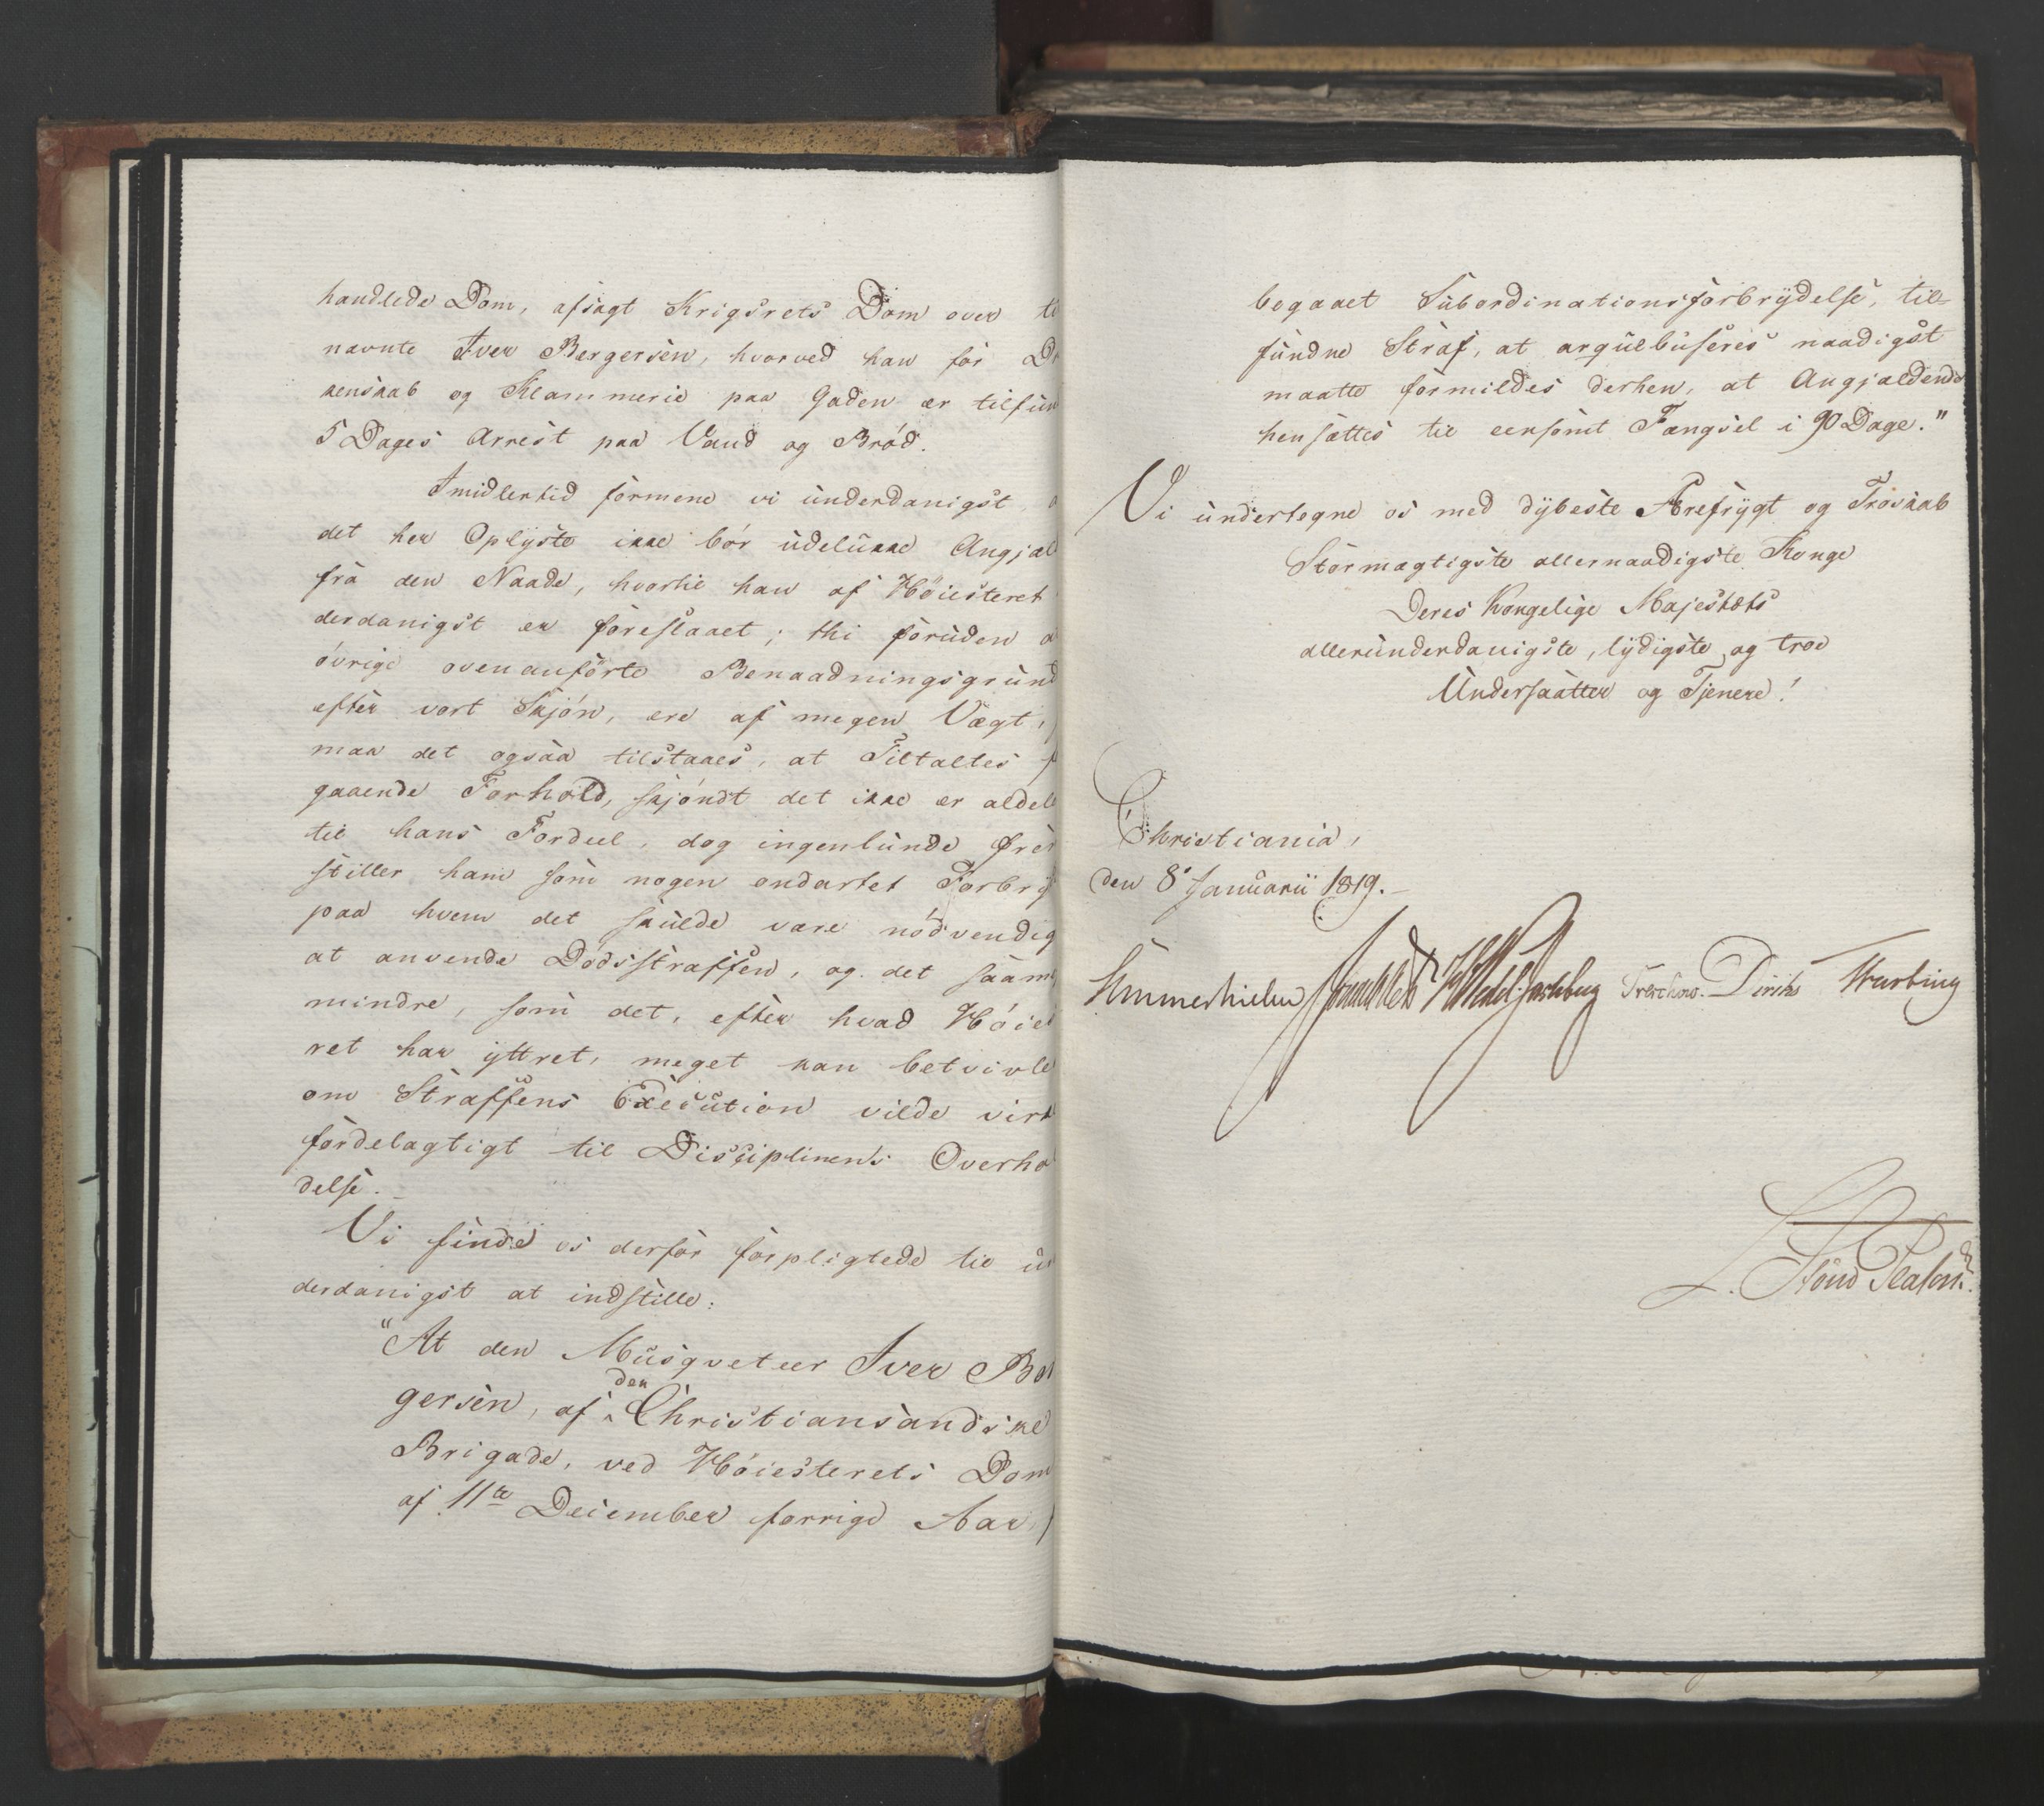 handlede Dom, afsagt Krigsrets Dom over
nævnte Iver Bergersen, hvorved han for
kenskab og Klammerie paa Gaden er tilfun
5 Dages Arrest paa Vand og Brød.
Imidlertid formene vi underdanigst,
det her Oplyste ikke bør udelukke Angjæl
fra den Naade, hvortil han af Høiesteret
derdanigst er foreslaaet; thi foruden
øvrige ovenanførte Benaadningsgrund
efter vort Skjøn, ere af megen Vægt,
maa det ogsaa tilstaaes, at Tiltaltes
gaaende Forhold, skjøndt det ikke er aldel
til hans Fordeel, dog ingenlunde frem
stiller ham som nogen ondartet Forbry
paa hvem det skulde være nødvendig
at anvende Dødsstraffen, og det saam
mindre, som det, efter hvad Høies
ret har yttret, meget kan betvivle
om Straffens Execution vilde virk
fordelagtigt til Disciplinens Overhol
delse.
Vi finde os derfor forpligtede til un
derdanigst at indstille:
"At den Musqveteer Iver Ber
gersen, af den Christiansandske
Brigade, ved Høiesterets Dom
af 11te December forrige Aar,
begaaet Subordinationsforbrydelse, til-
fundne Straf, at arqvebuseres naadigst
maatte formildes derhen, at Angjældende
hensættes til eensomt Fængsel i 90 Dage."
Vi undertegne os med dybeste Ærefrygt og Troskab
Stormægtigste allernaadigste Konge
Deres Kongelige Majestæts
allerunderdanigste, lydigste og troe
Undersaatter og Tjenere!
Christiania,
den 8 Januarii 1819.
Sommerhielm Wedel-Jarlsberg Treschow. Diriks